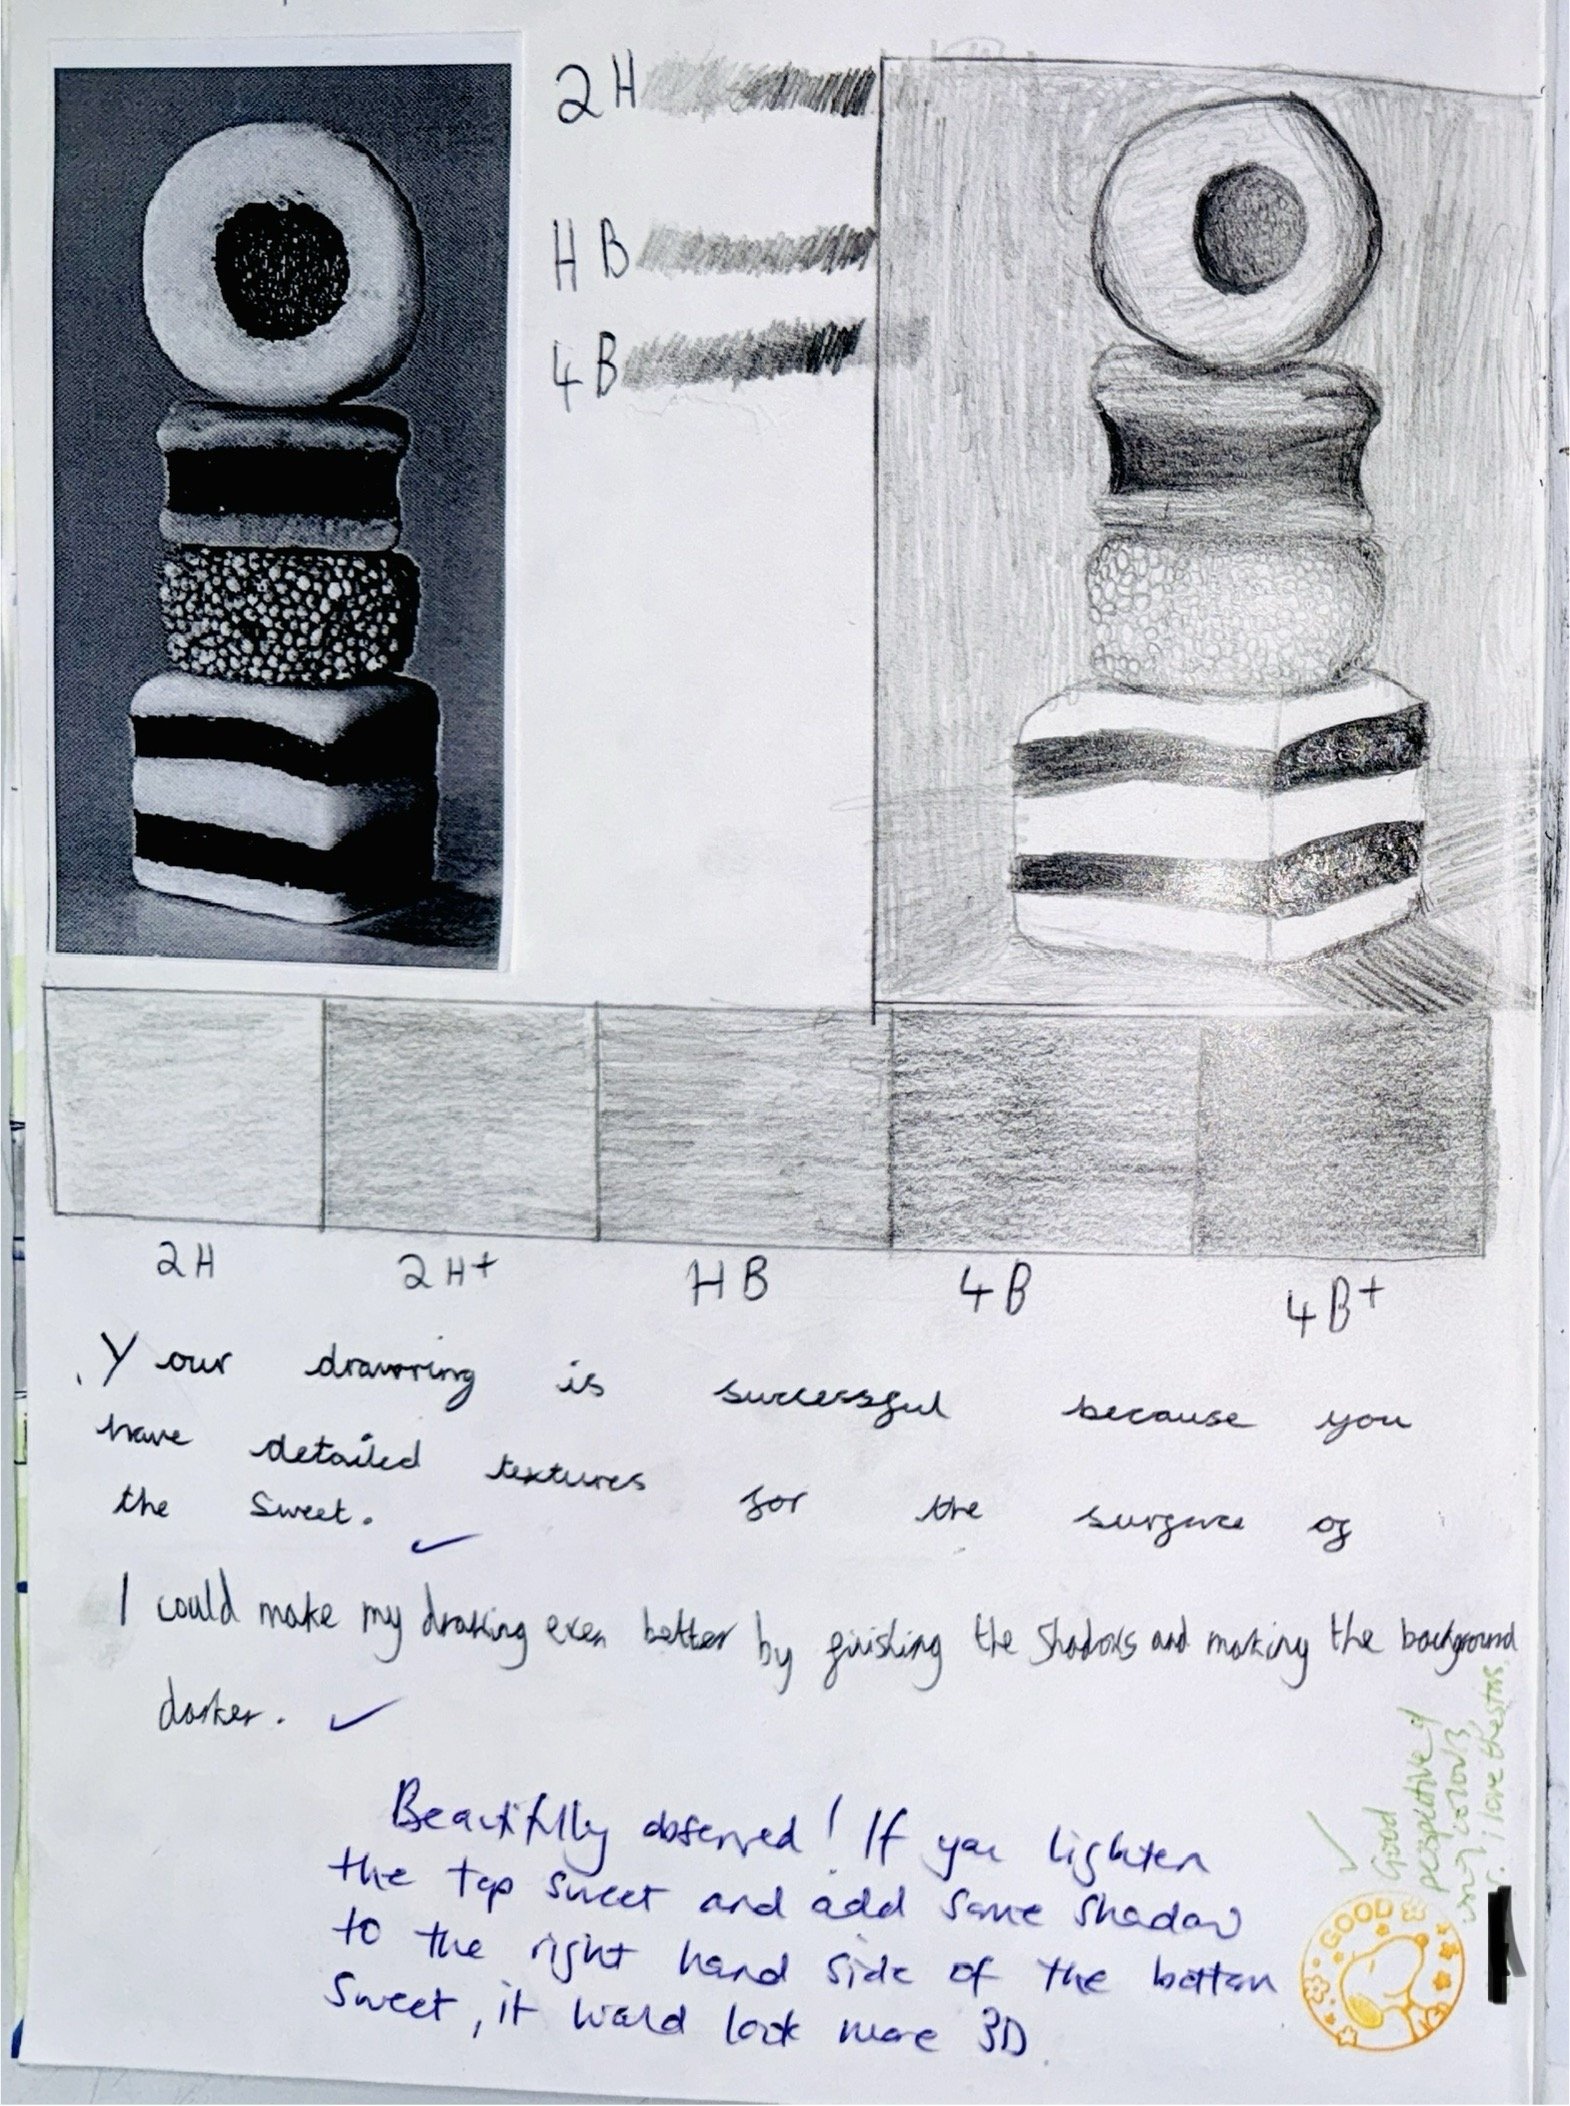 2H
HB
4B
2H
2H+
HB
4B
4B+
Your drawring is successful because you
have detailed textures for the surface of
the sweet.
I could make my drawing even better by finishing the shadows and making the background
darker.
Beautifully observed! If you lighten
the top sweet and add some shadow
to the right hand side of the bottom
sweet, it would look more 3D.
Good
perspective of
i love the
GOOD